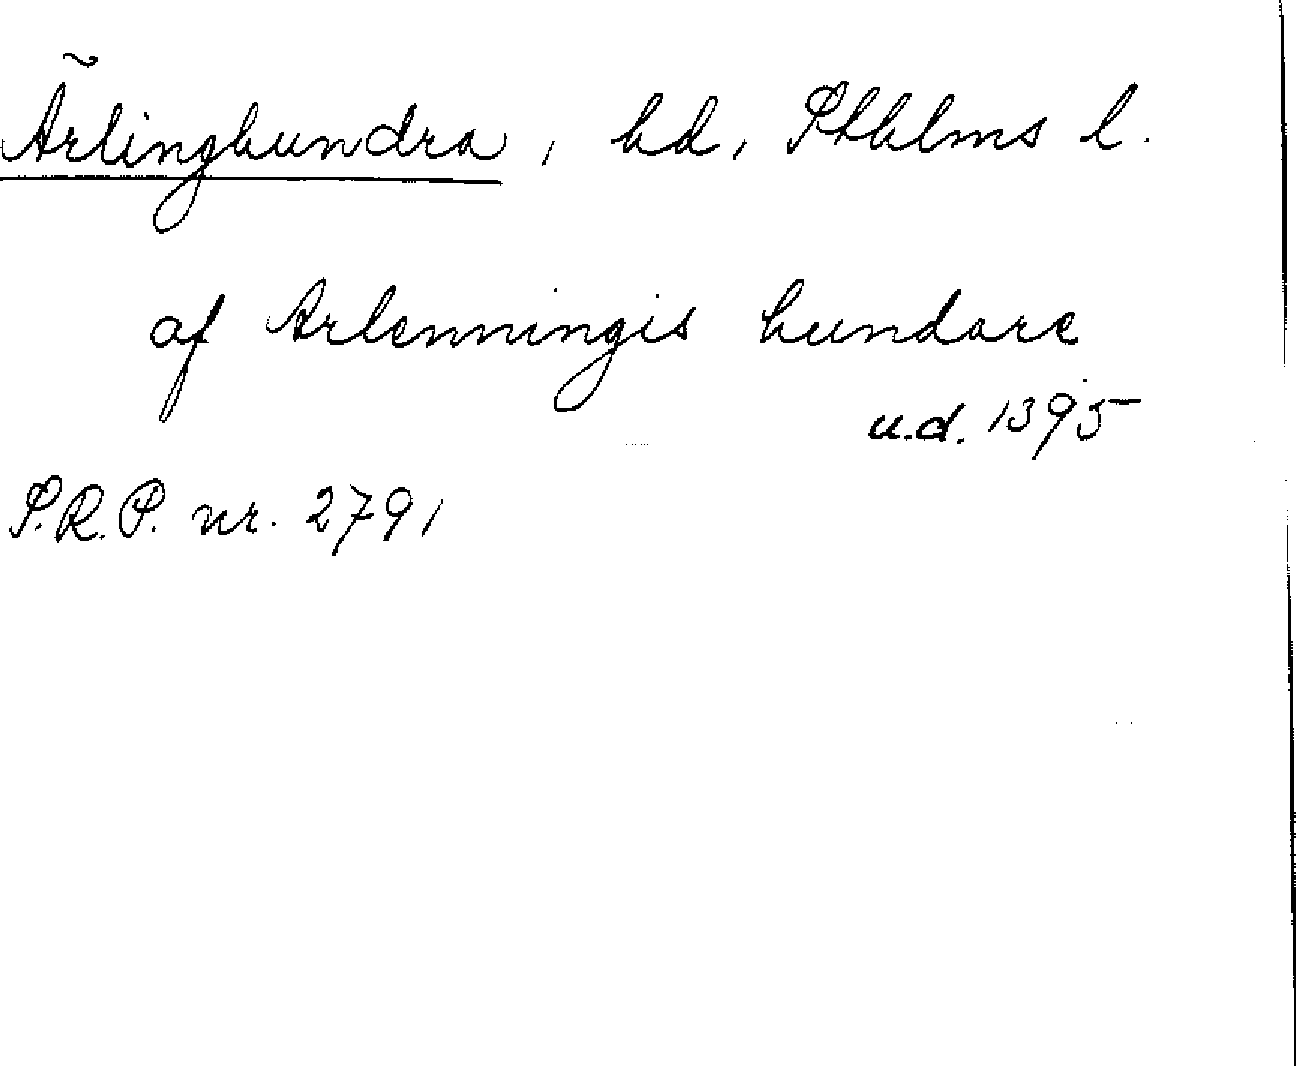 Ärlinghundra, hd, Sthlms l.
af Arlenningis hundare
u.d. 1395
S.R.P. nr. 2791